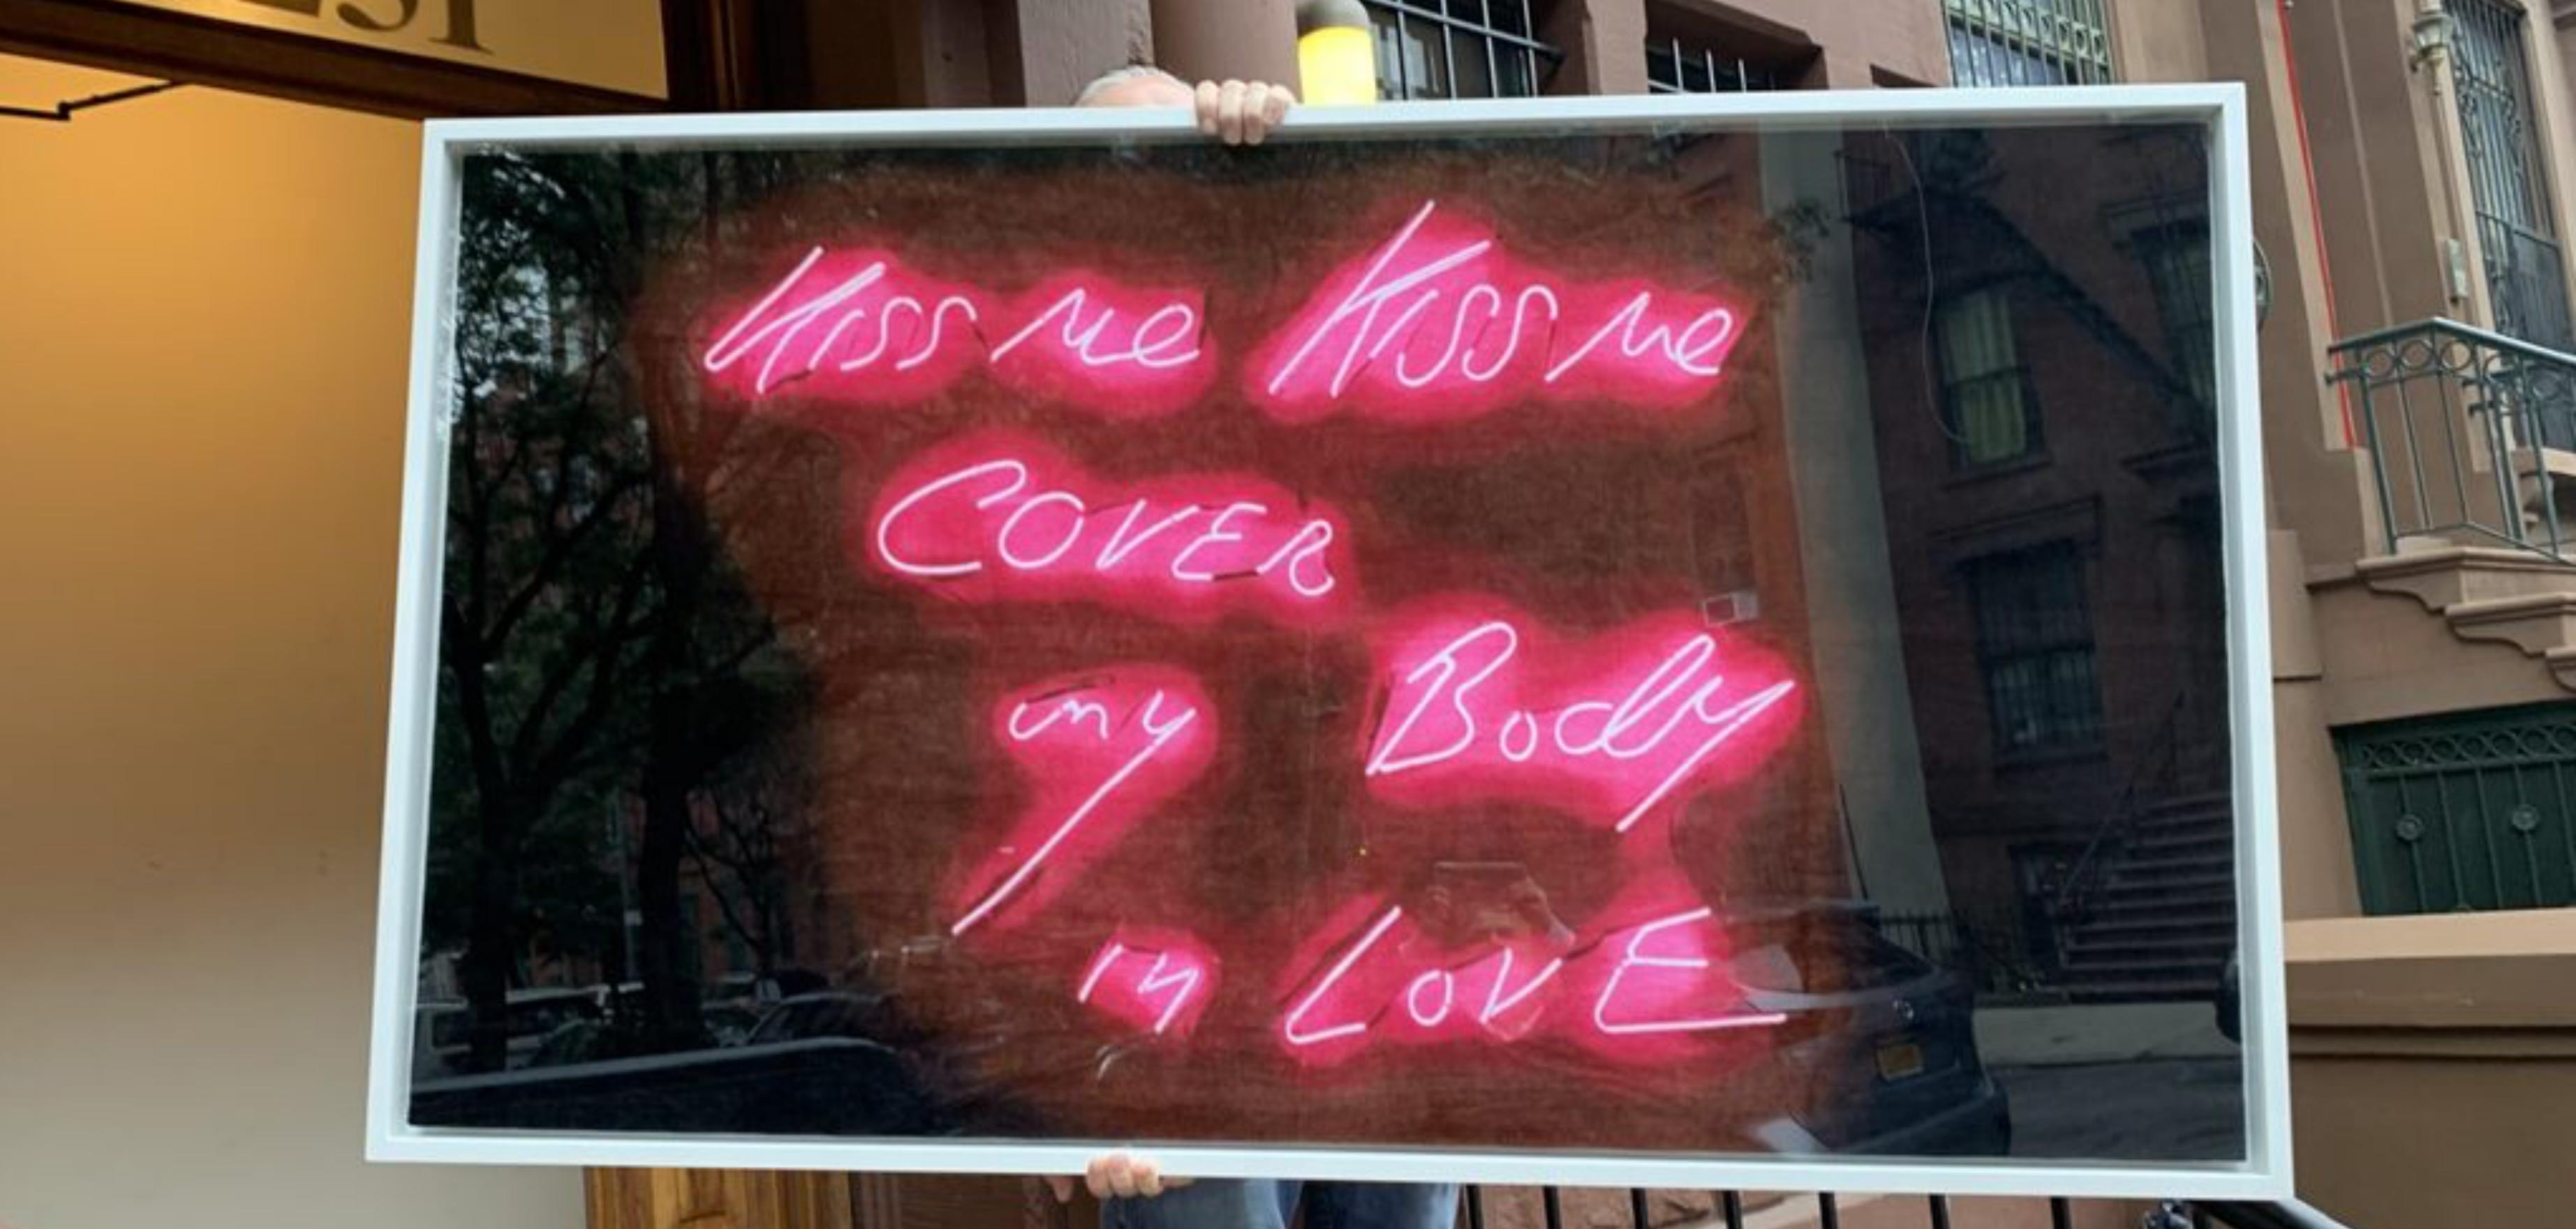 Kiss me Kiss me
COVER
my Body
in LOVE